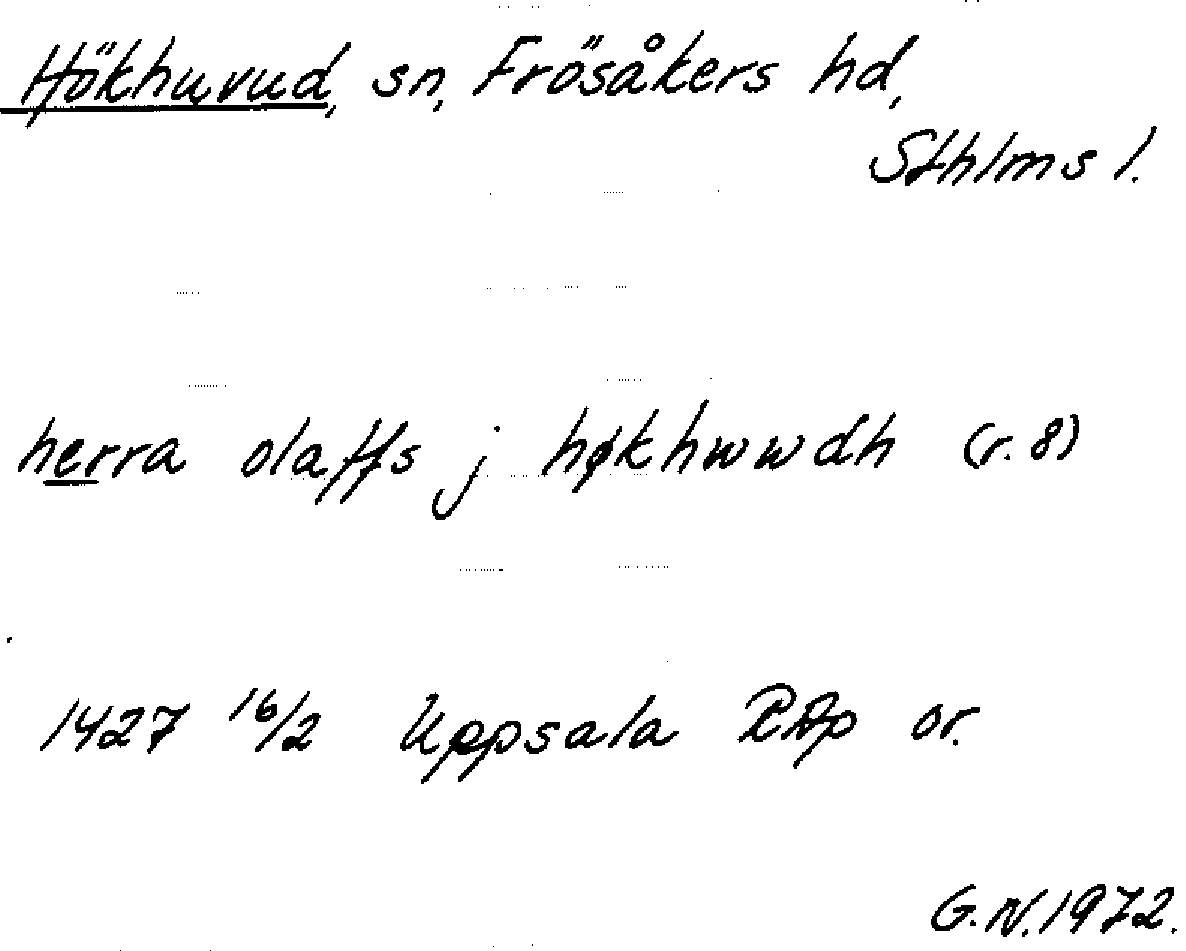 Hökhuvud, sn, Frösåkers hd,
Sthlms l.
herra olaffs j høkhwwdh (r. 8)
1427 16/2 Uppsala RAp or.
G.N. 1972.